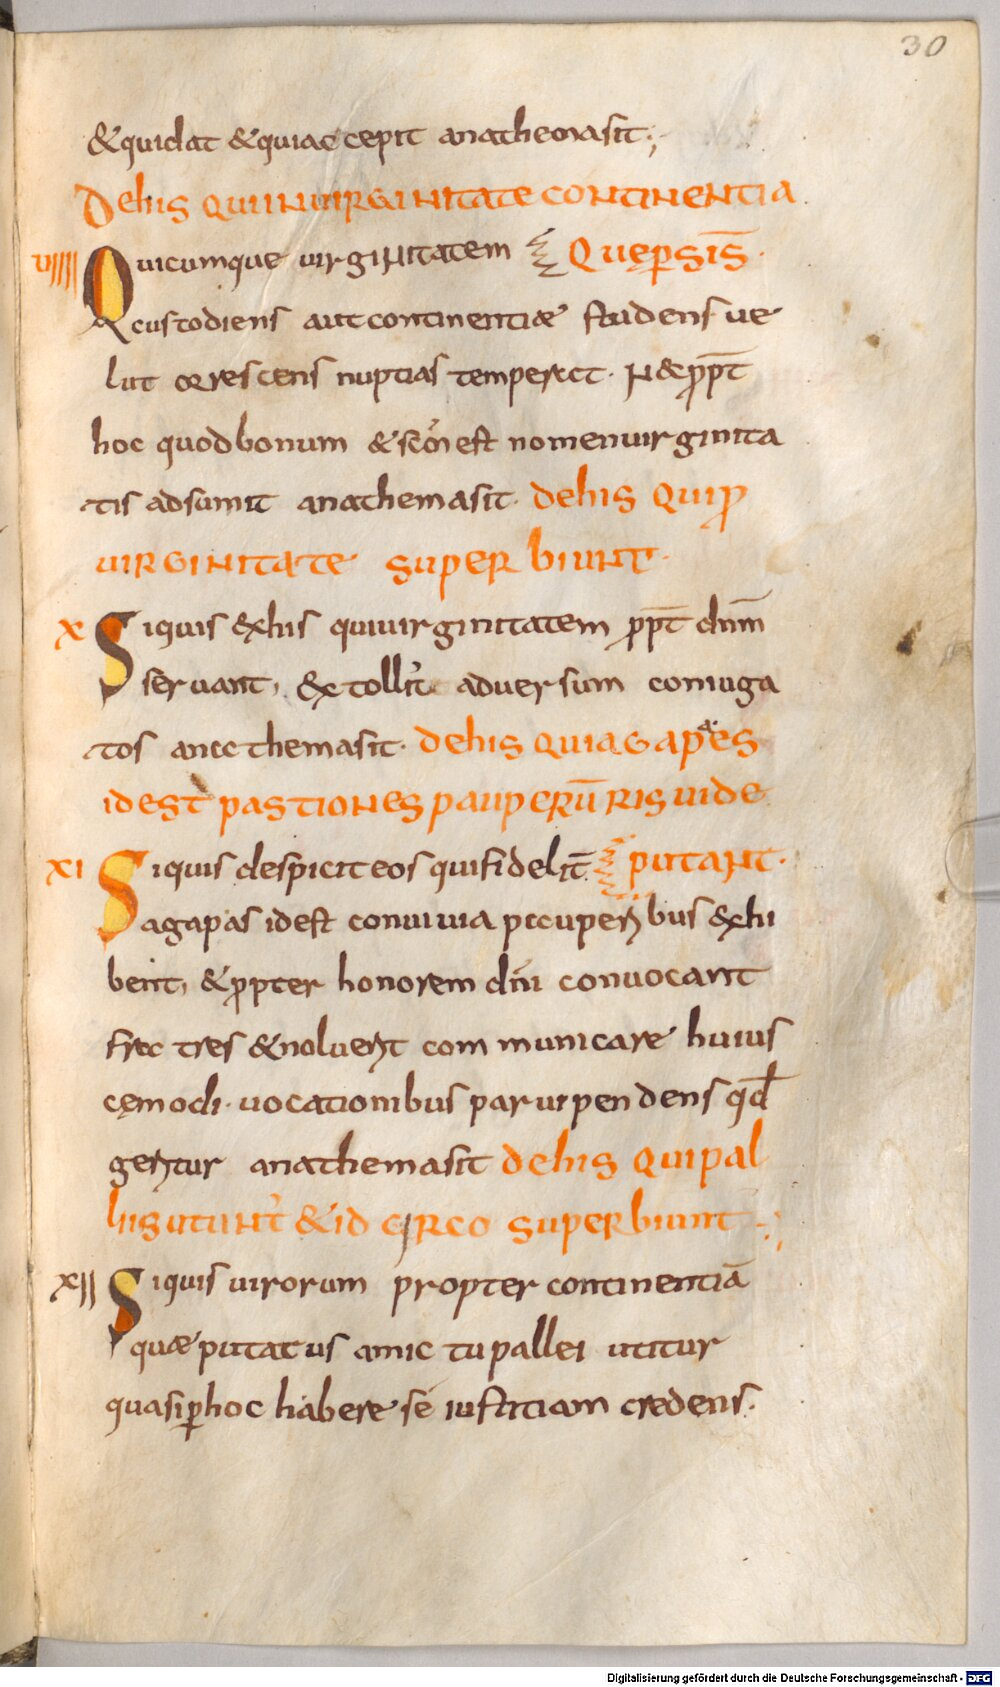 30
&quidat &quiaccepit anathemasit;
Dehis quiinuirginitate continentia
VIIII Quicumque uirginitatem quęp̄sis̄.
custodiens aut continentiæ studens ue
lut orrescens nuptias temperet. N& ꝓpt̄
hoc quod bonum & sc̄m est nomen uirginita
tis adsumit anathemasit. dehis qui ꝓ
uirginitate superbiunt.
X Siquis exhis qui uirginitatem ꝓpt̄ dn̄m
seruant, extollit̉ aduersum coniuga
tos anathemasit. dehis qui agapaes
idest pastiones pauperū risui de
XI Siquis despicit eos qui fidelit̄ putant.
agapas idest conuiuia pauperibus exhi
bent, & ꝓpter honorem dn̄i conuocant
fratres & noluerit communicare huius
cęmodi. uocationibus paruipendens qđ
geritur anathemasit dehis qui pal
liis utunt̉ & idcirco superbiunt
XII Siquis uirorum propter continentiā
quæ putatus amictu pallei utitur
quasi ꝑ hoc habere se iustitiam credens.
Digitalisierung gefördert durch die Deutsche Forschungsgemeinschaft - DFG